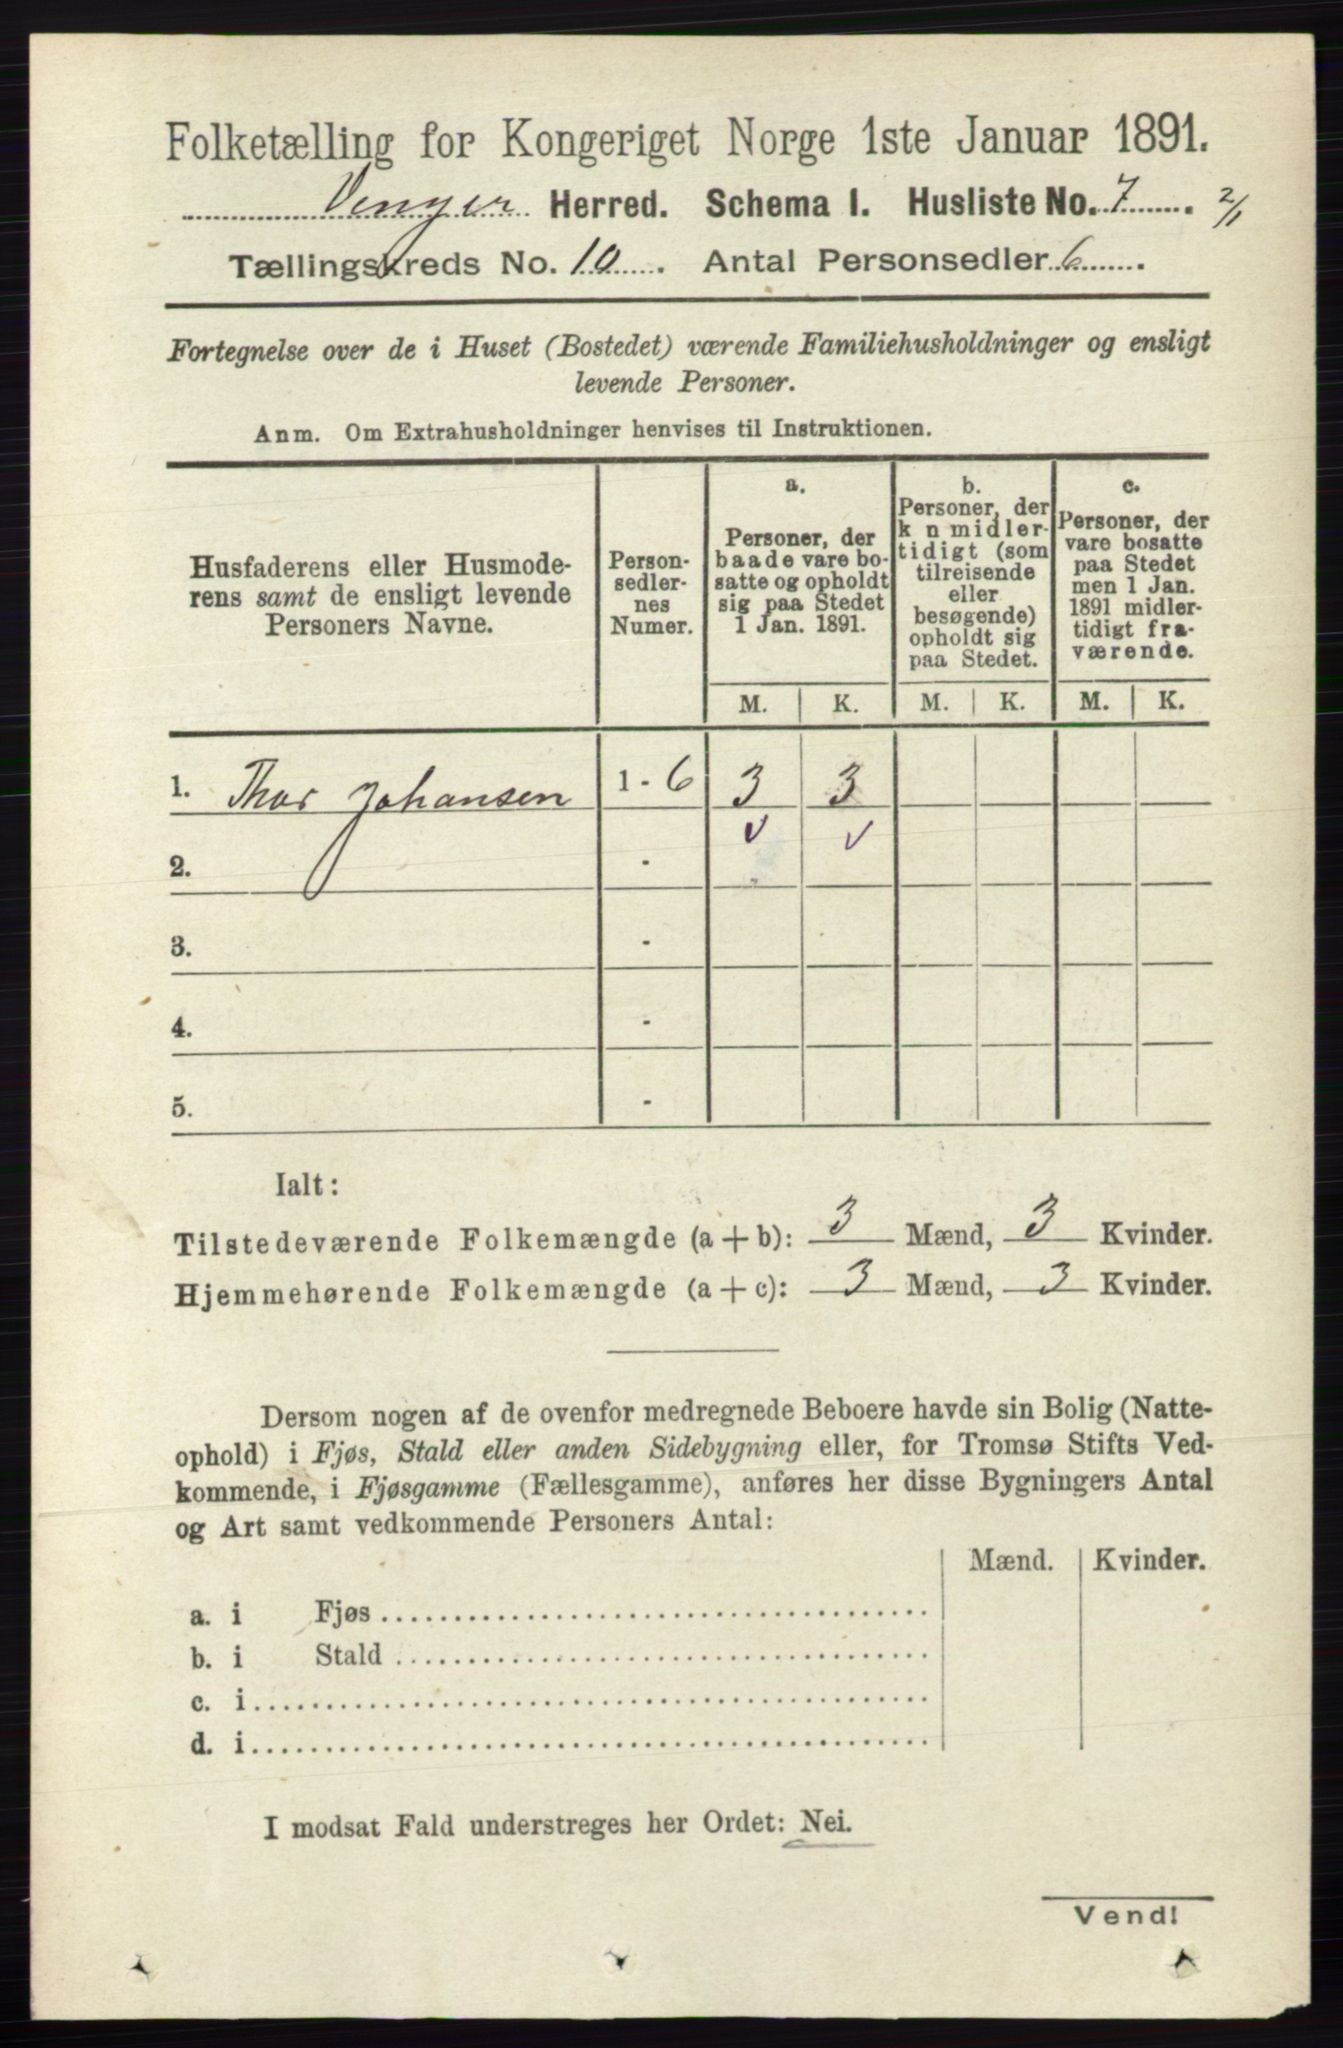 Folketælling for Kongeriget Norge 1ste Januar 1891.
Venger Herred. Schema I. Husliste No. 7. 2/1
Tællingskreds No. 10. Antal Personsedler 6.
Fortegnelse over de i Huset (Bostedet) værende Familiehusholdninger og ensligt
levende Personer.
Anm. Om Extrahusholdninger henvises til Instruktionen.
Husfaderens eller Husmode-
rens samt de ensligt levende
Personers Navne.
Person-
sedler-
nes
Numer.
a.
Personer, der
baade vare bo-
satte og opholdt
sig paa Stedet
1 Jan. 1891.
b.
Personer, der
k n midler-
tidigt (som
tilreisende
eller
besøgende)
opholdt sig
paa Stedet.
c.
Personer, der
vare bosatte
paa Stedet
men 1 Jan.
1891 midler-
tidigt fra-
værende.
M. K. M. K. M. K.
1. Thor Johansen 1 - 6 3 3
2. -
3. -
4. -
5. -
Ialt:
Tilstedeværende Folkemængde (a + b): 3 Mænd, 3 Kvinder.
Hjemmehørende Folkemængde (a + c): 3 Mænd, 3 Kvinder.
Dersom nogen af de ovenfor medregnede Beboere havde sin Bolig (Natte-
ophold) i Fjøs, Stald eller anden Sidebygning eller, for Tromsø Stifts Ved-
kommende, i Fjøsgamme (Fællesgamme), anføres her disse Bygningers Antal
og Art samt vedkommende Personers Antal:
Mænd. Kvinder.
a. i Fjøs
b. i Stald
c. i
d. i
I modsat Fald understreges her Ordet: Nei.
Vend!